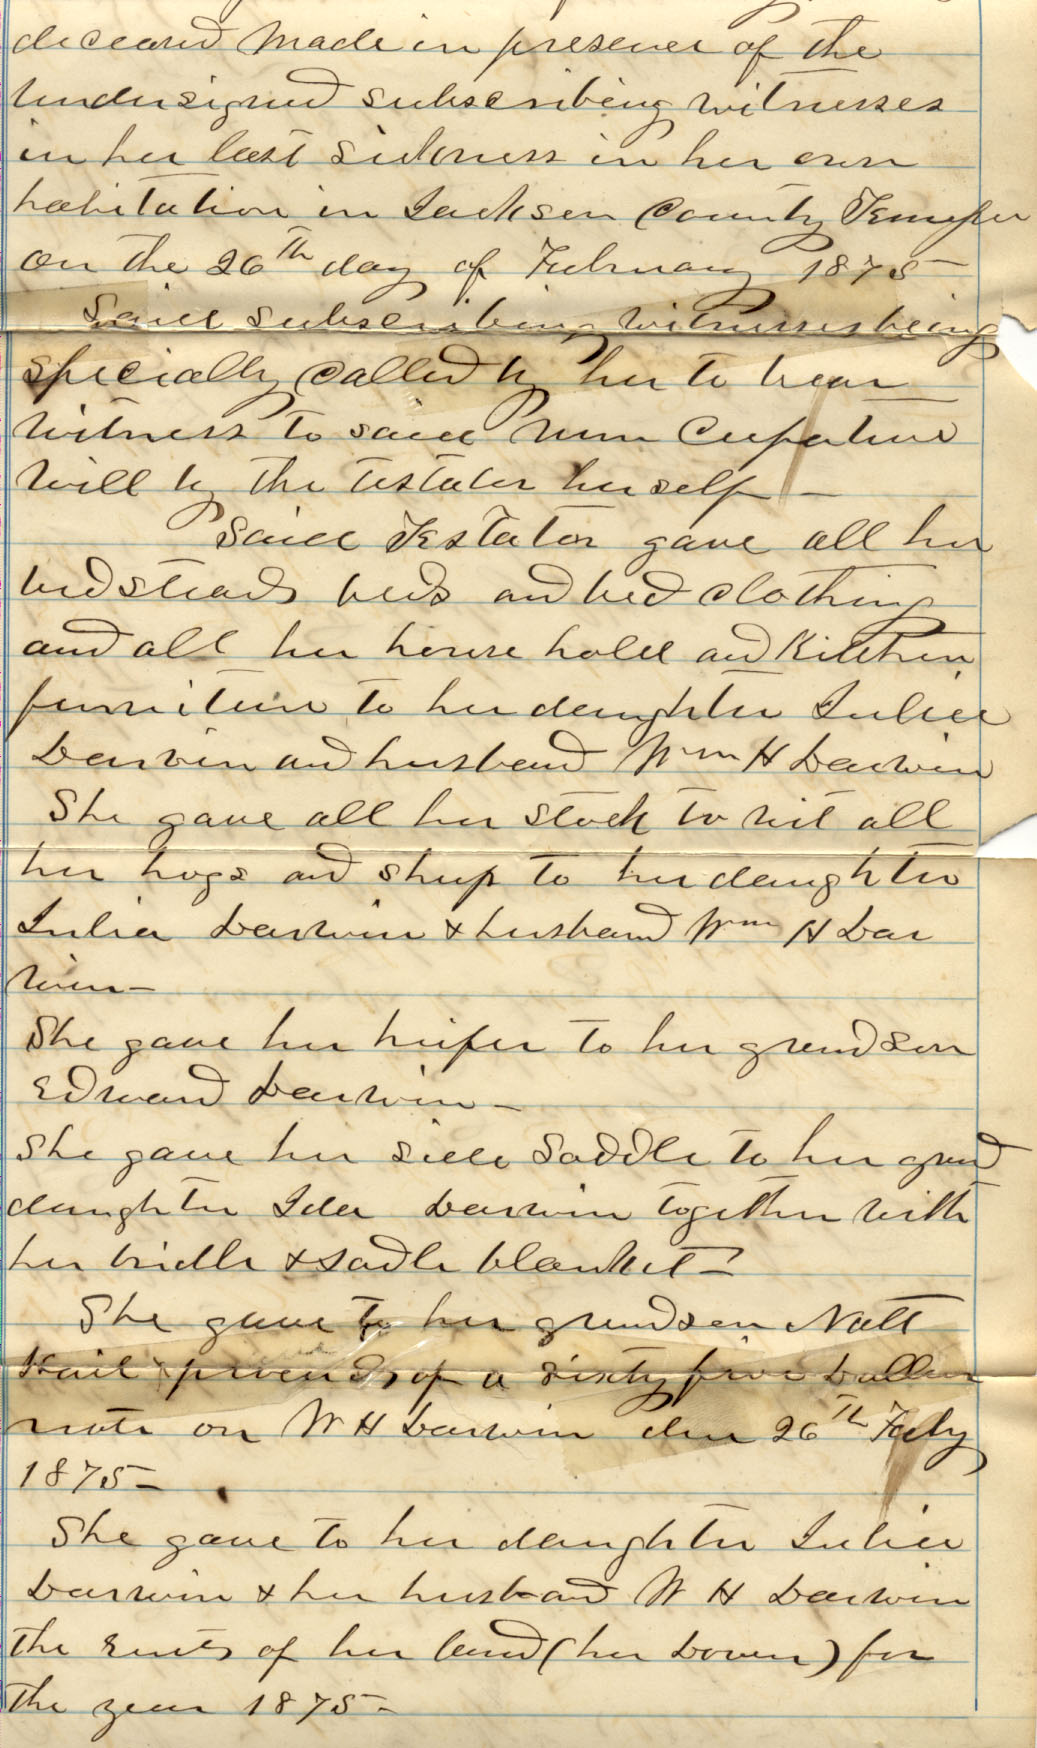 deceased made in presence of the
undersigned subscribing witnesses
in her last sickness in her own
habitation in Jackson County Tennessee
on the 26th day of February 1875
Said subscribing witnesses being
specially called by her to bear
witness to said nun cupative
will by the testator herself —
Said Testator gave all her
bedsteads beds and bed clothing
and all her house hold and Kitchen
furniture to her daughter Julia
Darwin and husband Wm H Darwin
She gave all her stock to wit all
her hogs and sheep to her daughter
Julia Darwin & husband Wm H Dar
win —
She gave her heifer to her grand son
Edward Darwin —
She gave her side saddle to her grand
daughter Ida Darwin together with
her bridle & sadle blanket —
She gave to her grandson Natt
of a sixty five Dollar
note on W H Darwin due 26th
1875 —
She gave to her daughter Julia
Darwin & her husband W H Darwin
the rents of her land (her Dower) for
the year 1875 —